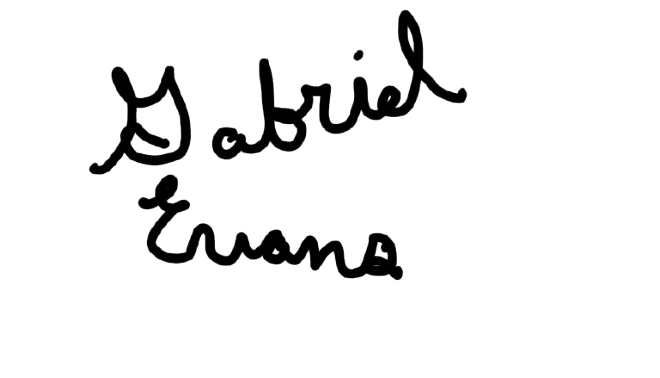 Gabriel
Evans